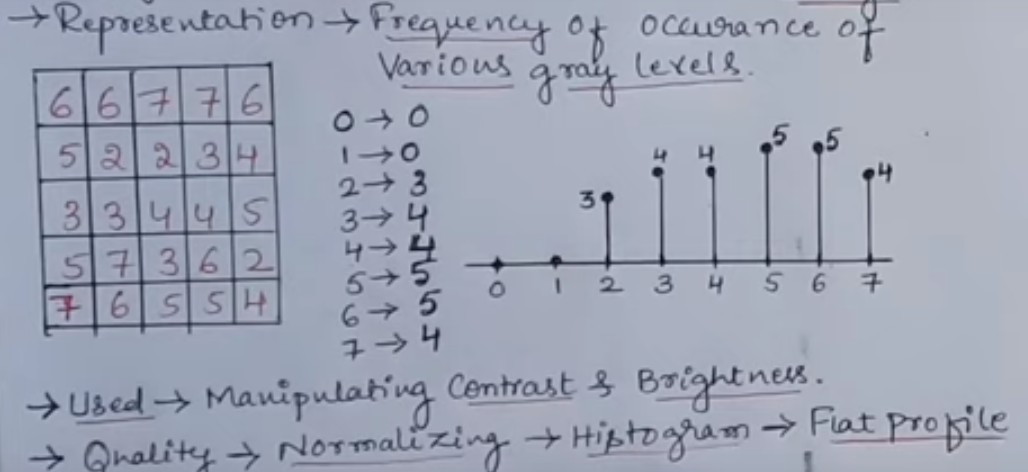 → Representation → Frequency of occurance of
Various gray levels.
6 6 7 7 6
5 2 2 3 4
3 3 4 4 5
5 7 3 6 2
7 6 5 5 4
0 → 0
1 → 0
2 → 3
3 → 4
4 → 4
5 → 5
6 → 5
7 → 4
3 4 4 5 5 4
0 1 2 3 4 5 6 7
→ Used → Manipulating Contrast & Brightness.
→ Quality → Normalizing → Histogram → Flat profile